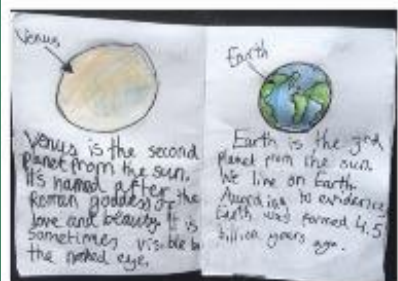 Venus
Venus is the second
planet from the sun.
It's named after the
Roman goddess of
love and beauty It is
sometimes visible to
the naked eye.
Earth
Earth is the 3rd
planet from the sun.
We live on Earth.
According to evidence
Earth was formed 4.5
billion years ago.